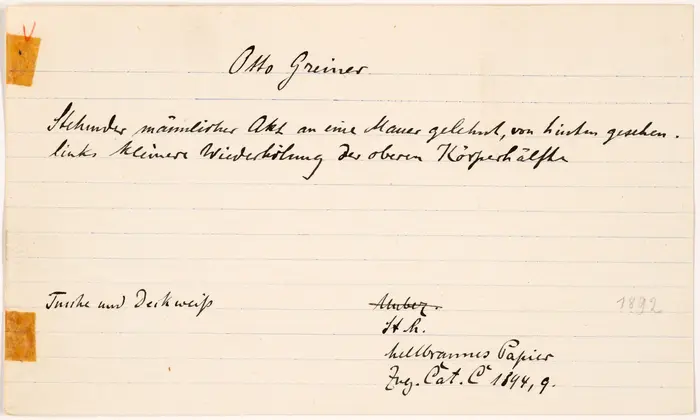 Otto Greiner.
Stehender männlicher Akt an eine Mauer gelehnt, von hinten gesehen.
links kleinere Wiederholung der oberen Körperhälfte
Tusche und Deckweiß
1892
St. K.
hellbraunes Papier
Zug. Cat. C 1894, 9.